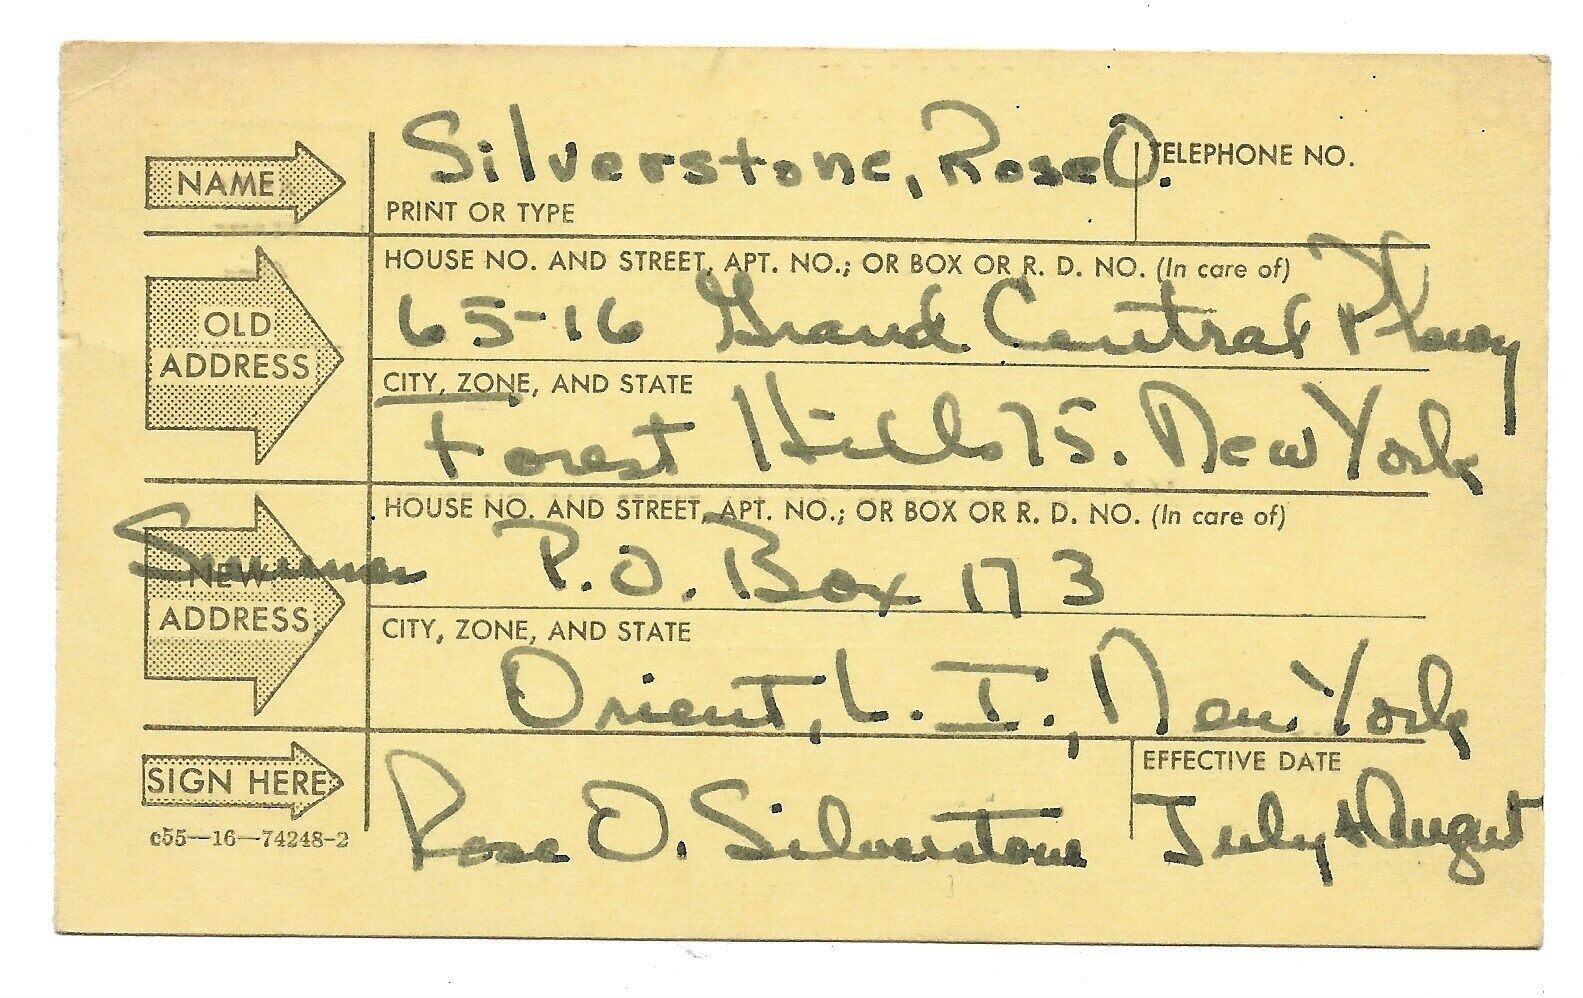 Silverstone, Rose O.
NAME
TELEPHONE NO.
PRINT OR TYPE
HOUSE NO. AND STREET, APT. NO.; OR BOX OR R. D. NO. (In care of)
OLD ADDRESS
65-16 Grand Central Pkway
CITY, ZONE, AND STATE
Forest Hills 75. New York
HOUSE NO. AND STREET, APT. NO.; OR BOX OR R. D. NO. (In care of)
Summer
NEW ADDRESS
P.O. Box 173
CITY, ZONE, AND STATE
Orient, L. I., New York
SIGN HERE
EFFECTIVE DATE
Rose O. Silverstone
July & August
c55—16—74248-2